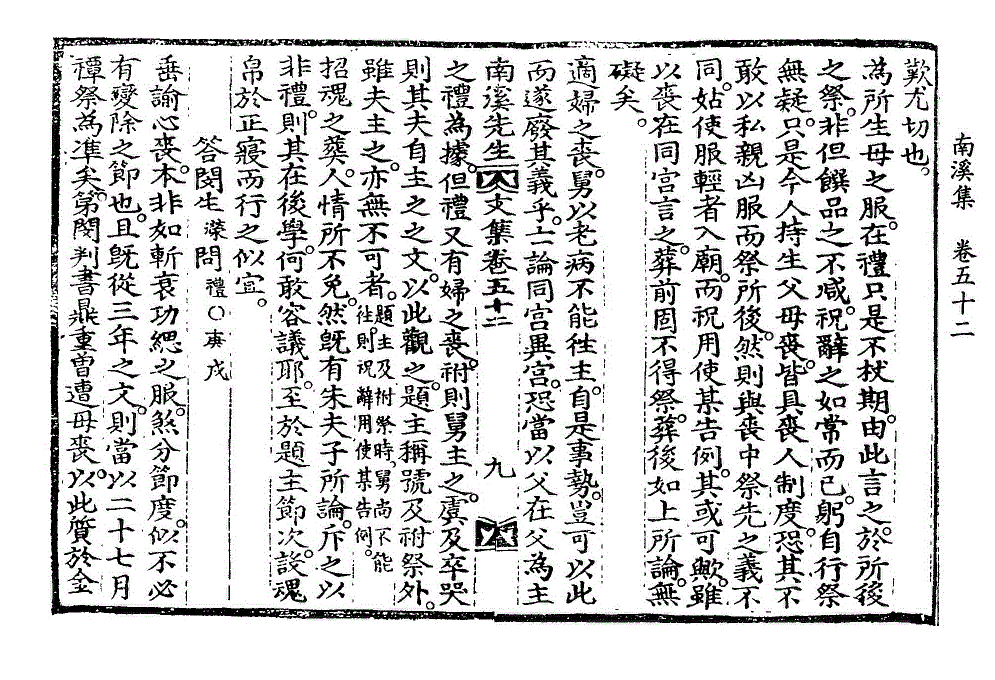 南溪集　卷五十二
歎尤切也。
為所生母之服。在禮只是不杖期。由此言之。於所後
之祭。非但饌品之不減。祝辭之如常而已。躬自行祭
無疑。只是今人持生父母喪。皆具喪人制度。恐其不
敢以私親凶服而祭所後。然則與喪中祭先之義不
同。姑使服輕者入廟。而祝用使某告例。其或可歟。雖
以喪在同宮言之。葬前固不得祭。葬後如上所論。無
礙矣。
適婦之喪。舅以老病不能往主。自是事勢。豈可以此
而遂廢其義乎。上論同宮異宮。恐當以父在父為主
南溪先生文集卷五十二　九
之禮為據。但禮又有婦之喪。祔則舅主之。虞及卒哭
則其夫自主之之文。以此觀之。題主稱號及祔祭外。
雖夫主之。亦無不可者。題主及祔祭時。舅尚不能往。則祝辭用使某告例。
招魂之葬。人情所不免。然既有朱夫子所論。斥之以
非禮。則其在後學。何敢容議耶。至於題主節次。設魂
帛於正寢而行之似宜。
答閔生濼問禮○庚戌
垂諭心喪。本非如斬衰功緦之服煞分節度。似不必
有變除之節也。且既從三年之文。則當以二十七月
禫祭為準矣。第閔判書鼎重曾遭母喪。以此質於金